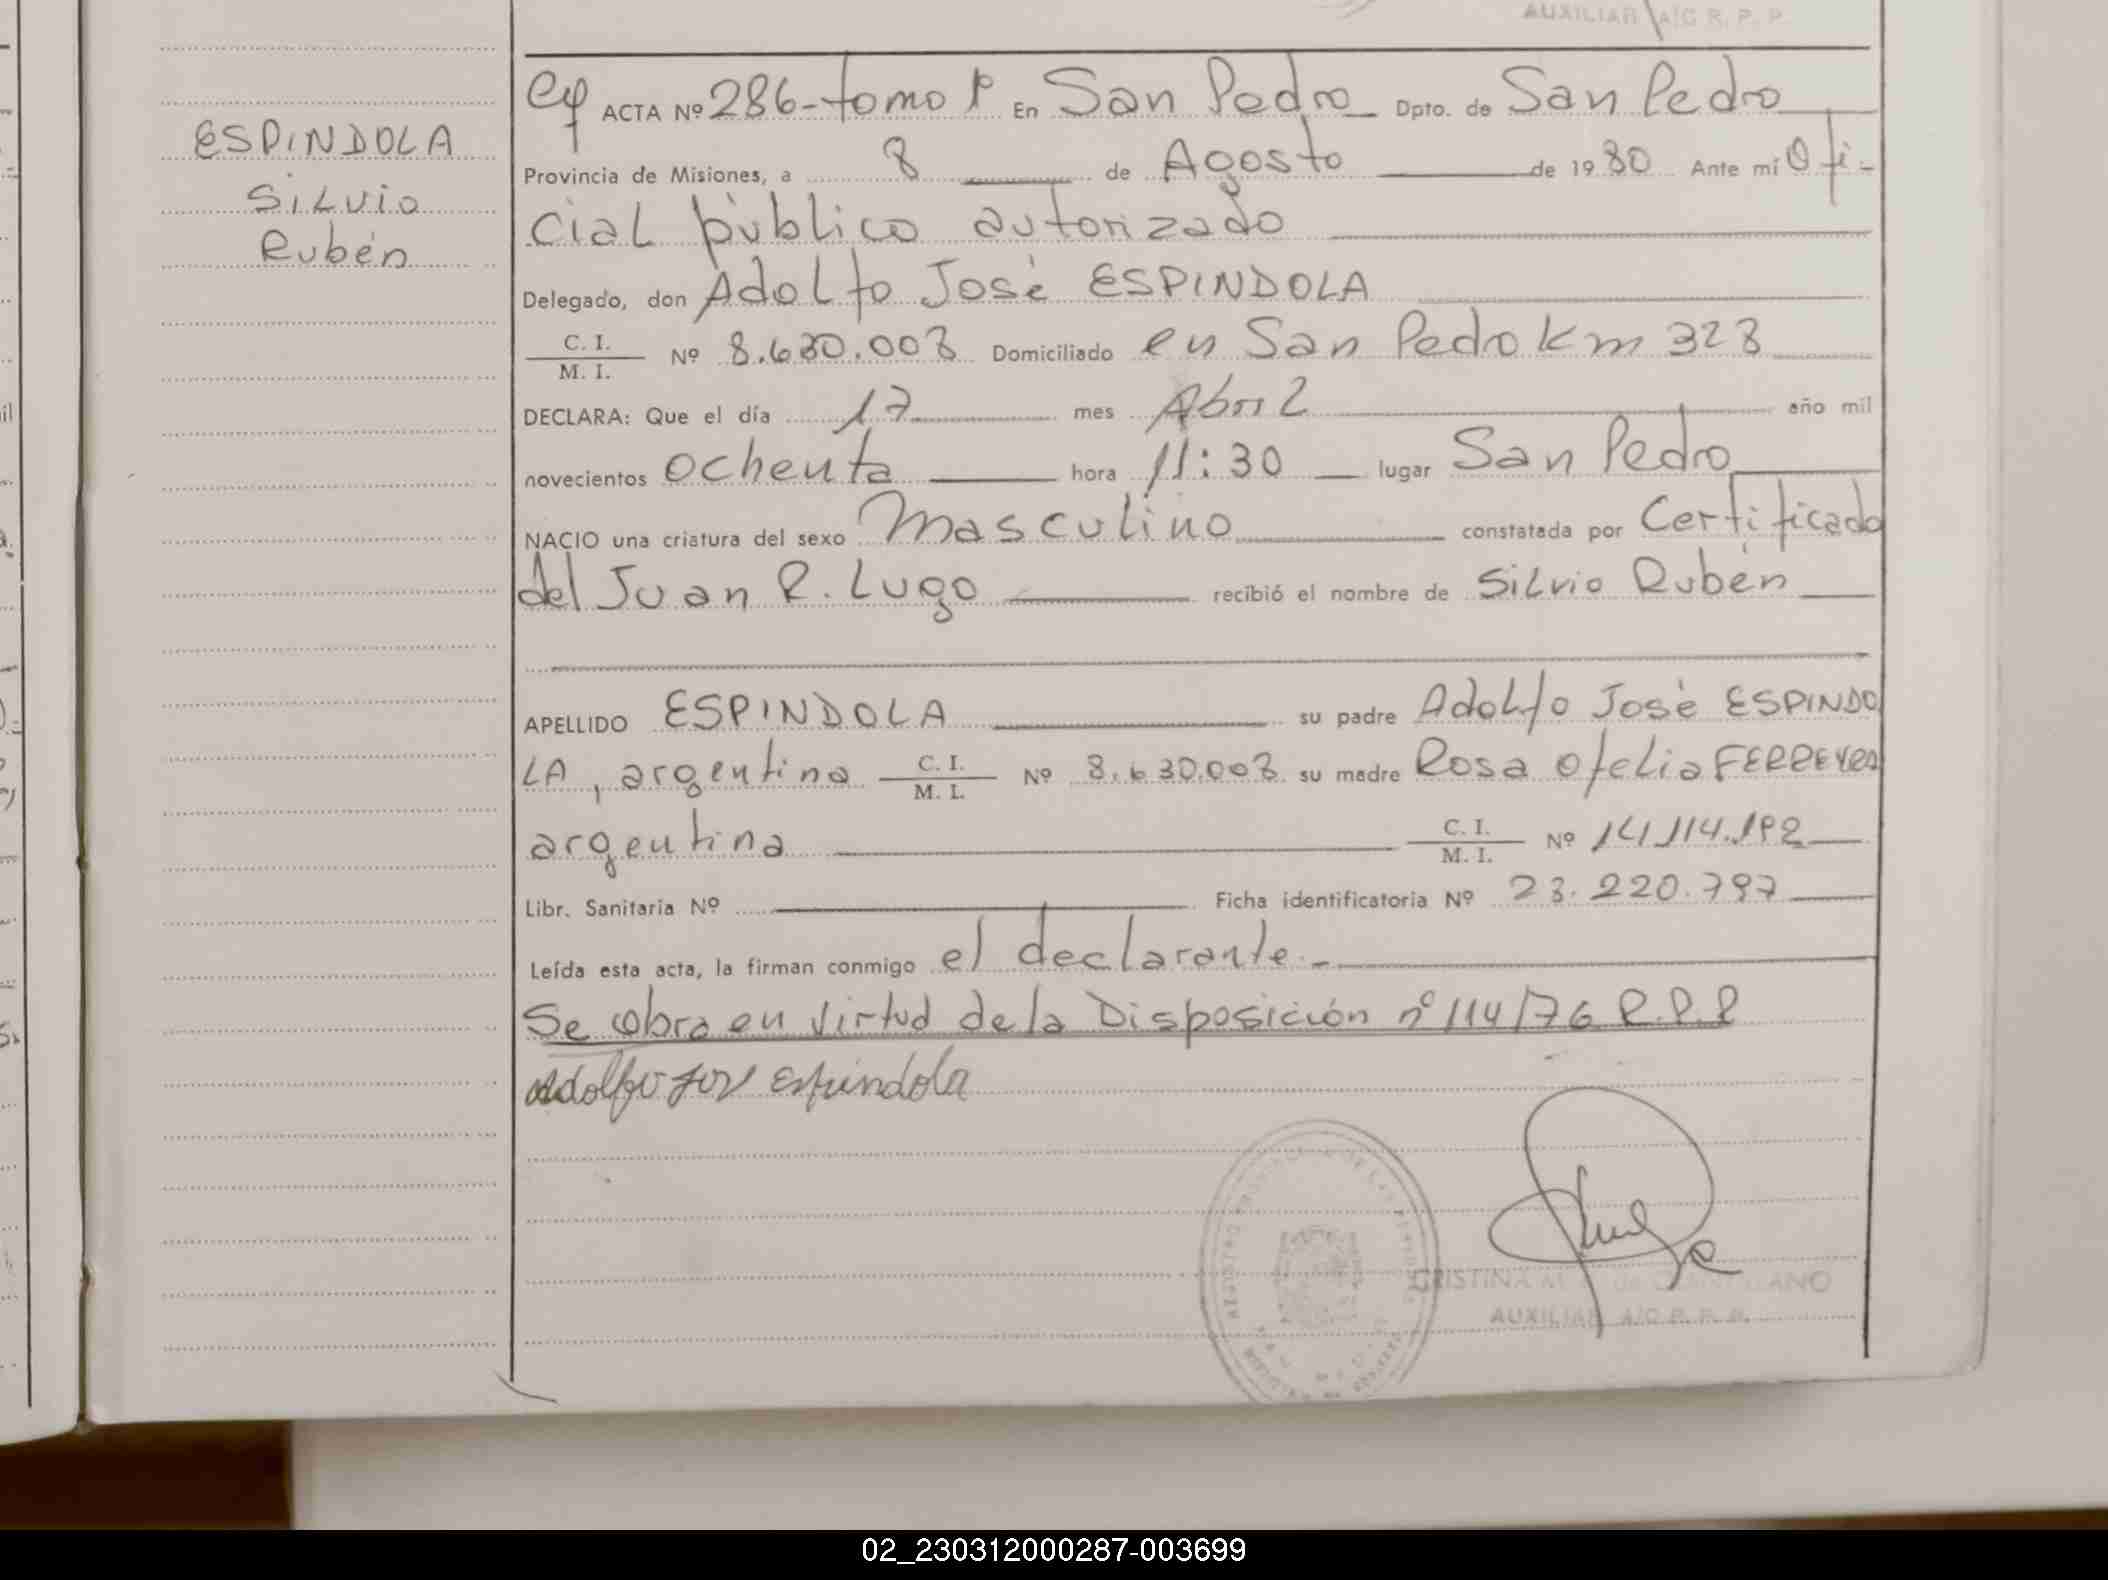 AUXILIAR A/C R. P. P.
ESPINDOLA
SiLvio
Rubén
ACTA Nº 286-tomo 1º En San Pedro Dpto. de San Pedro
Provincia de Misiones, a 8 de Agosto de 19 80 Ante mi Ofi-
cial público autorizado
Delegado, don Adolfo José ESPINDOLA
C. I.
M. I. Nº 8.630.008 Domiciliado en San Pedro Km 328
DECLARA: Que el día 17 mes Abril año mil
novecientos ochenta hora 11:30 lugar San Pedro
NACIO una criatura del sexo Masculino constatada por Certificado
del Juan R. Lugo recibió el nombre de Silvio Rubén
APELLIDO ESPINDOLA su padre Adolfo José ESPINDO
LA, argentina C. I.
M. I. Nº 8.630.008 su madre Rosa Ofelia FERREYRA
argentina C. I.
M. I. Nº 14.114.192
Libr. Sanitaria Nº Ficha identificatoria Nº 28.220.797
Leída esta acta, la firman conmigo el declarante.-
Se obra en virtud de la Disposición nº 114/76 R.P.P
Adolfo José Espindola
CRISTINA M. de
AUXILIAR A/C R. P. P.
02_230312000287-003699